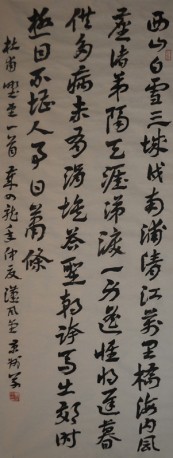 西山白雪三城戍南浦清江萬里橋海内風
塵諸弟隔天涯涕淚一身遙惟將遲暮
供多病未有涓埃答聖朝跨馬出郊時
極目不堪人事日蕭條
杜甫野望一首 龍年仲夏